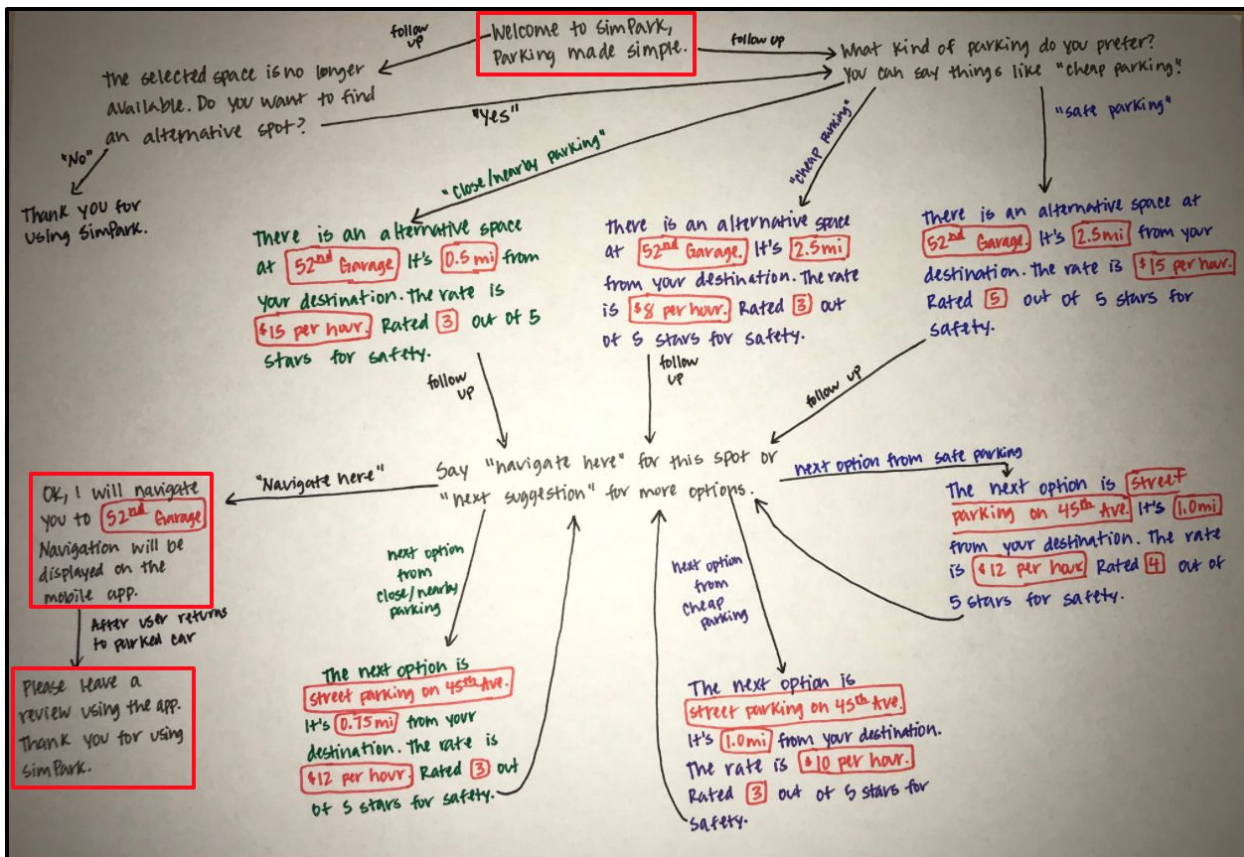 Welcome to SimPark,
Parking made simple.
follow
up
follow up
The selected space is no longer
available. Do you want to find
an alternative spot?
What kind of parking do you prefer?
You can say things like "cheap parking."
"Yes"
"No"
Thank you for
using SimPark.
"Close/nearby parking"
"cheap parking"
"safe parking"
There is an alternative space
at 52nd Garage. It's 0.5 mi from
your destination. The rate is
$15 per hour. Rated 3 out of 5
stars for safety.
there is an alternative space
at 52nd Garage. It's 2.5mi
from your destination. The rate
is $8 per hour. Rated 3 out
of 5 stars for safety.
There is an alternative space at
52nd Garage. It's 2.5mi from your
destination. The rate is $15 per hour.
Rated 5 out of 5 stars for
safety.
follow
up
follow
up
follow up
Say "navigate here" for this spot or
"next suggestion" for more options.
"Navigate here"
OK, I will navigate
you to 52nd Garage
Navigation will be
displayed on the
mobile app.
After user returns
to parked car
Please leave a
review using the app.
Thank you for using
SimPark.
next option
from
close/nearby
parking
The next option is
street parking on 45th Ave.
It's 0.75mi from your
destination. The rate is
$12 per hour. Rated 3 out
of 5 stars for safety.
next option
from
cheap
parking
The next option is
street parking on 45th Ave.
It's 1.0mi from your destination.
The rate is $10 per hour.
Rated 3 out of 5 stars for
safety.
next option from safe parking
The next option is street
parking on 45th Ave. It's 1.0mi
from your destination. The rate
is $12 per hour Rated 4 out of
5 stars for safety.